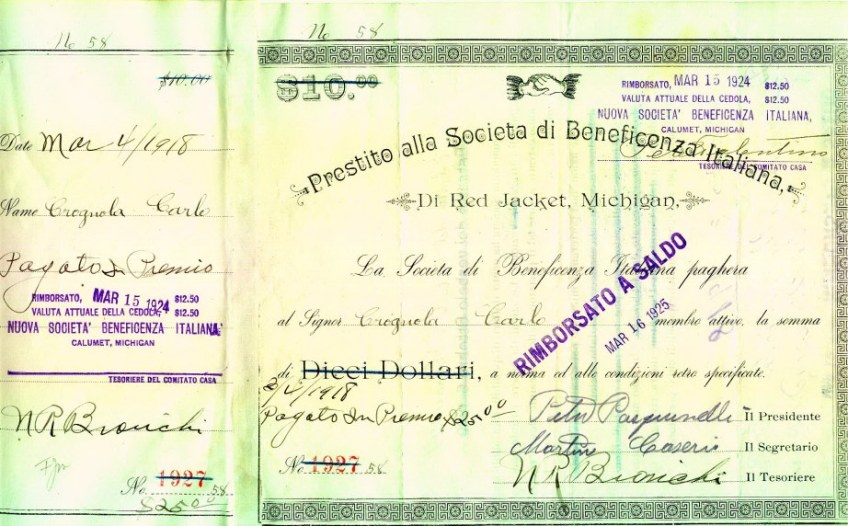 No 58
$10.00
Date Mar 4/1918
Name Crognola Carlo
Pagato In Premio
RIMBORSATO, MAR 15 1924 $12.50
VALUTA ATTUALE DELLA CEDOLA, $12.50
NUOVA SOCIETA' BENEFICENZA ITALIANA,
CALUMET, MICHIGAN
TESORIERE DEL COMITATO CASA
N R Bianchi
No. 1927 58
$25.00
No 58
$10.00
RIMBORSATO, MAR 15 1924 $12.50
VALUTA ATTUALE DELLA CEDOLA, $12.50
NUOVA SOCIETA' BENEFICENZA ITALIANA,
CALUMET, MICHIGAN
TESORIERE DEL COMITATO CASA
Prestito alla Societa di Beneficenza Italiana,
Di Red Jacket, Michigan,
La Societa di Beneficenza Italiana paghera
al Signor Crognola Carlo membro attivo, la somma
di Dieci Dollari, a norma ed alle condizioni retro specificate.
RIMBORSATO A SALDO
MAR 16 1925
3/4/1918
Pagato In Premio $25.00
Il Presidente
Martin Il Segretario
No 1927 58
N R Bianchi Il Tesoriere